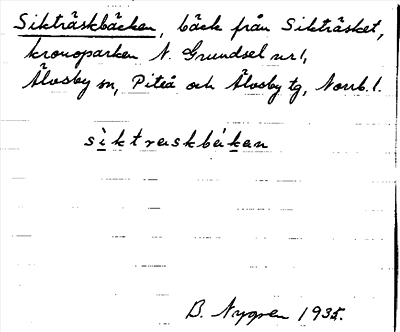 Sikträskbäcken, bäck från Sikträsket,
kronoparken N. Grundsel nr 1,
Älvsby sn, Piteå och Älvsby tg, Norrb. l.
siktreskbekan
B. Nygren 1935.